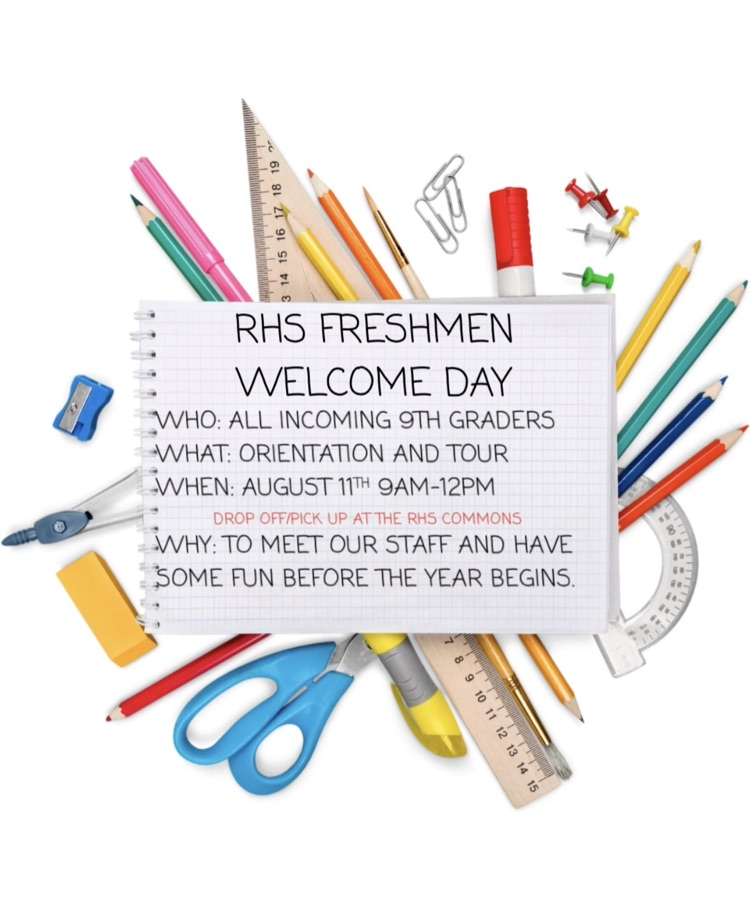 19
18
17
16
15
14
RHS FRESHMEN
WELCOME DAY
WHO: ALL INCOMING 9TH GRADERS
WHAT: ORIENTATION AND TOUR
WHEN: AUGUST 11TH 9AM-12PM
DROP OFF/PICK UP AT THE RHS COMMONS
WHY: TO MEET OUR STAFF AND HAVE
SOME FUN BEFORE THE YEAR BEGINS.
7
8
9
10
11
12
13
14
15